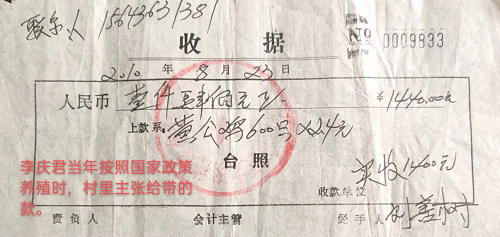 联系人 15643631381
收 据
No 0009833
2010 年 8 月 23 日
人民币 壹仟肆佰元正 ¥1440.00元
上款系 黄公鸡600只×2.4元
台照 实收1400元
李庆君当年按照国家政策
养殖时，村里主张给带的
款。
收款单位
负责人 会计主管 经手人